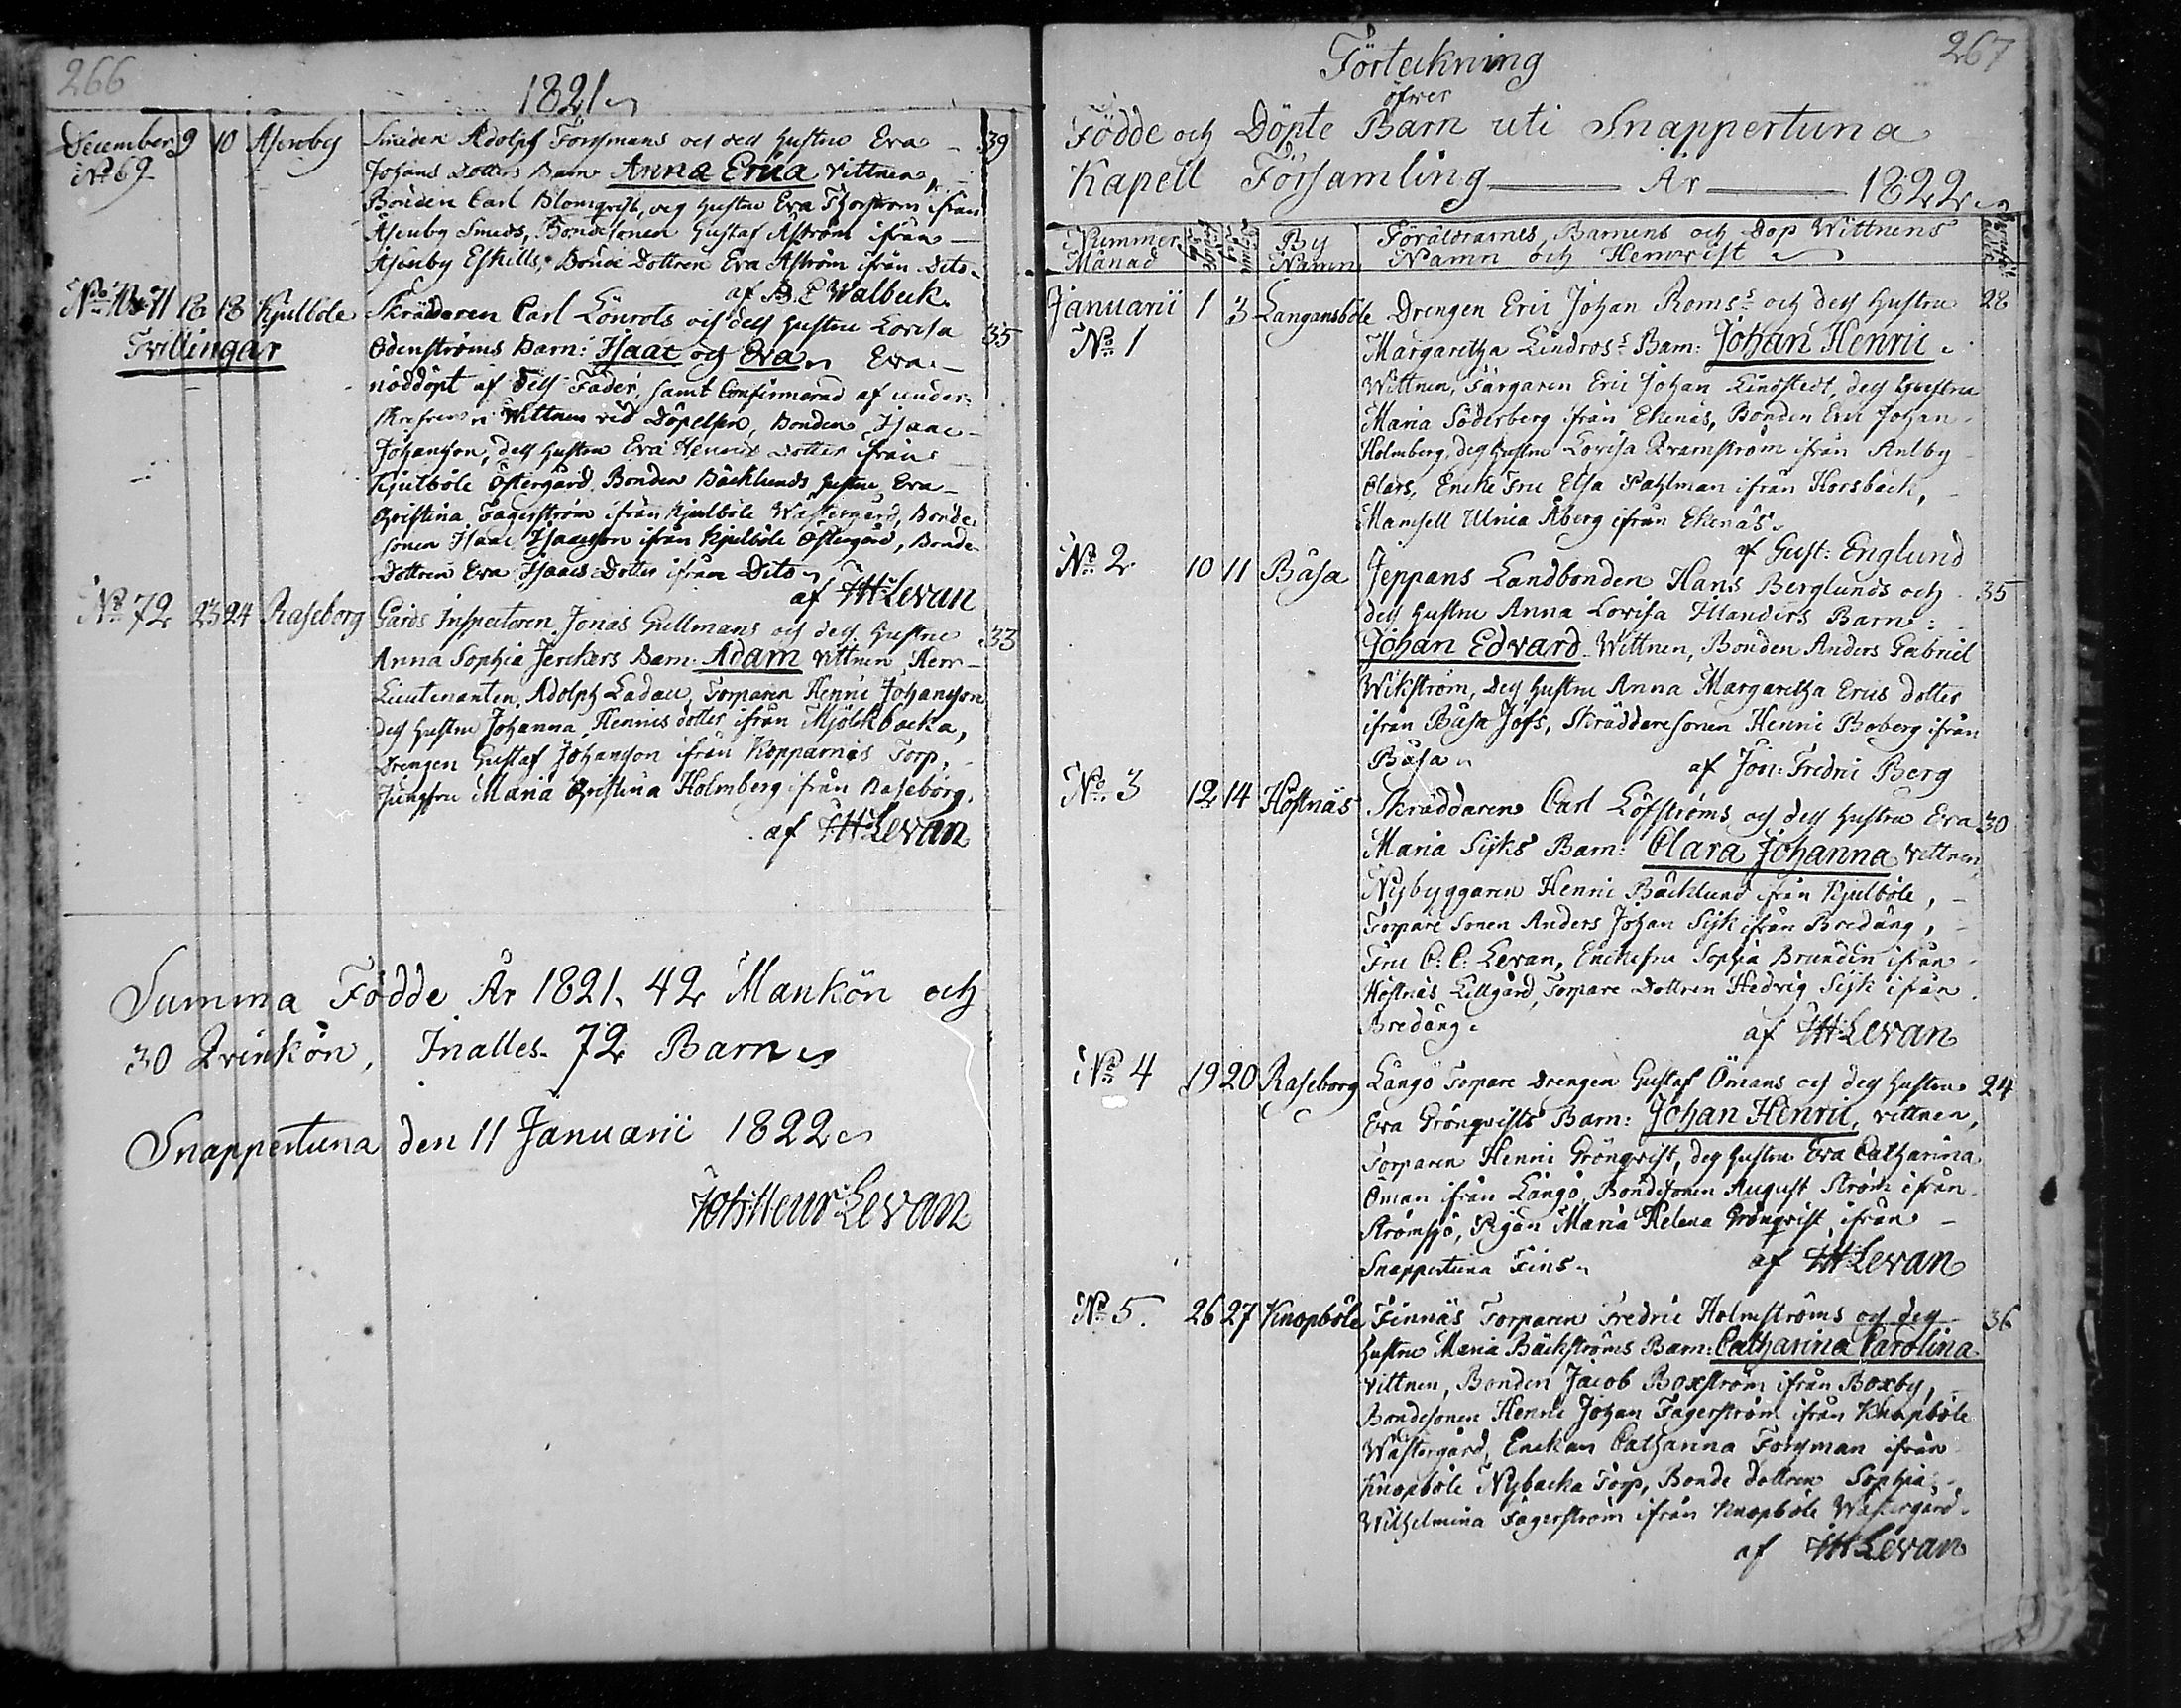 266
1821
December 9 10 Åsenby Smeden Adolph Forssmans och dess hustru Eva 39
No 69 Johans Dotters Barn Anna Erica Vittnen,
Bonden Carl Blomqvist, dess hustru Eva Thorstrom ifrån
Åsenby Smeds, Bondesonen Gustaf Åström ifrån
Åsenby Eskills, Bonde Dottren Eva Åström ifrån Dito
af B. E Walbeck.
No 70. 71 18 18 Kjulböle Skräddaren Carl Lönrots och dess hustru Lovisa 35
Tvillingar Ödenströms Barn: Isaac och Eva, Eva
nöddöpt af dess Fader, samt Confirmerad af under-
skrefven Wittnen vid Döpelsen, Bonden Isaac
Johansson, dess hustru Eva Henrics Dotter ifrån
Kjulböle Östergård. Bonden Bäcklunds hustru Eva
Christina Fagerström ifrån Kjulböle Wästergård, Bonde
sonen Isaac Isaacsson ifrån Kjulböle Östergård, Bonde
Dottren Eva Isaacs Dotter ifrån Dito
af JHLevan
No 72 23 24 Raseborg Gårds Inspectoren Jonas Gullmans och dess hustru 33
Anna Sophia Jerckers Barn Adam Vittnen Herr
Lieutenanten Adolph Ladau, Torparen Henric Johansson
dess hustru Johanna Henrics dotter ifrån Mjölkbacka,
Drengen Gustaf Johansson ifrån Kopparnäs Torp,
Jungfru Maria Christina Holmberg ifrån Raseborg.
af JHLevan
Summa Födde År 1821. 42 Mankön och
30 Qvinkön, Inalles 72 Barn
Snappertuna den 11 Januarii 1822
Joh: Henr Levan
267
Förteckning
öfver
Födde och Döpte Barn uti Snappertuna
Kapell Församling År 1822
Nummer By Föräldrarnes, Barnens och Dop Wittnens
Månad Namn Namn och Hemvist
Januarii 1 3 Langansböle Drengen Eric Johan Roms:s och dess hustru 28
No 1 Margaretha Lindros:s Barn: Johan Henric
Wittnen, Färgaren Eric Johan Lindstedt, dess hustru
Maria Söderberg ifrån Ekenäs, Bonden Eric Johan
Holmberg, dess hustru Lovisa Qvarnström ifrån Anlby
Olars, Encke Fru Elsa Pahlman ifrån Horsbäck,
Mamsell Ulrica Åberg ifrån Ekenäs
af Gust: Englund
No 2 10 11 Båsa Jeppans Landbonden Hans Berglunds och 35
dess hustru Anna Lovisa Ihlanders Barn:
Johan Edvard. Wittnen, Bonden Anders Gabriel
Wikström, dess hustru Anna Margaretha Erics dotter
ifrån Båsa Jofs, Skräddaresonen Henric Boberg ifrån
Båsa
af Jon: Fredric Berg
No 3 12 14 Höstnäs Skräddaren Carl Löfströms och dess hustru Eva 30
Maria Sijks Barn: Clara Johanna Vittnen,
Nybyggaren Henric Bäcklund ifrån Kjulböle,
Torpare Sonen Anders Johan Sijk ifrån Bredäng,
Fru C: C: Levan, Enckefru Sophia Brundin ifrån
Höstnäs Lillgård, Torpare Dottren Hedvig Sijk ifrån
Bredäng.
af JHLevan
No 4 19 20 Raseborg Längö Torpare Drengen Gustaf Ömans och dess hustru 24
Eva Grönqvists Barn: Johan Henric, Vittnen,
Torparen Henric Grönqvist, dess hustru Eva Catharina
Öman ifrån Längö, Bondesonen August Ström ifrån
Strömsjö, Pigan Maria Helena Grönqvist, ifrån
Snappertuna Fins
af JHLevan
No 5. 26 27 Knopböle Finnäs Torparen Fredric Holmströms och dess 36
hustru Maria Bäckströms Barn: Catharina Carolina
Vittnen, Bonden Jacob Boxström ifrån Boxby,
Bondesonen Henric Johan Fagerström ifrån Knopböle
Wästergård, Enckan Catharina Forssman ifrån
Knopböle Nybacka Torp, Bonde dottren Sophia
Wilhelmina Fagerström ifrån Knopböle Wästergård
af JHLevan